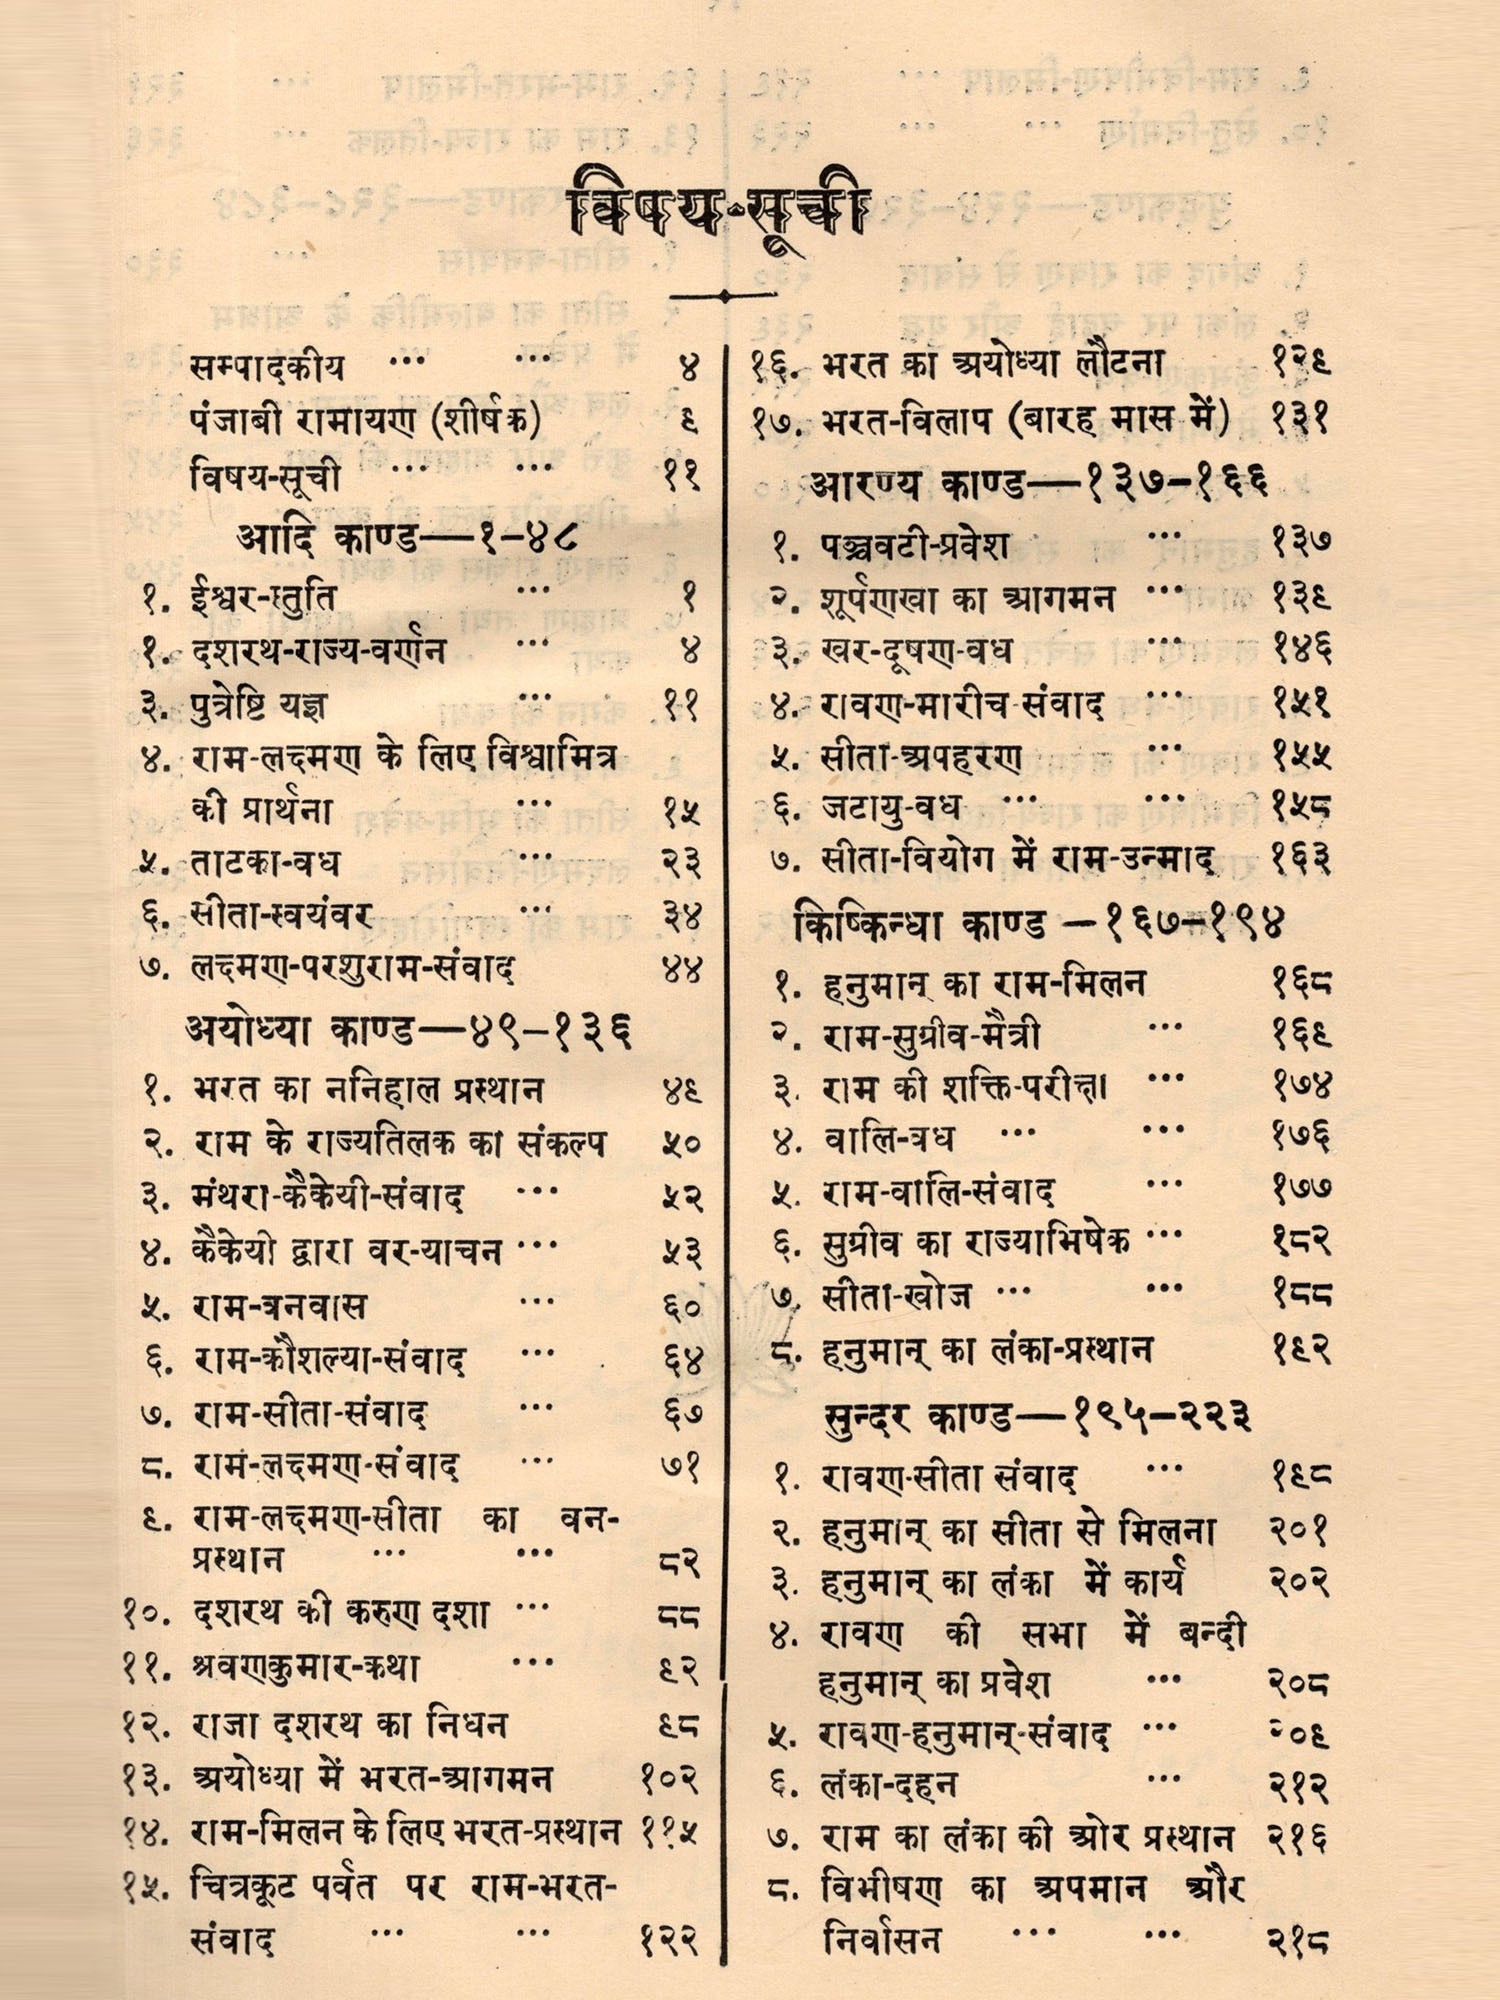 विषय-सूची
सम्पादकीय ... ... ४
पंजाबी रामायण (शीर्षक) ९
विषय-सूची ... ... ११
आदि काण्ड—१-४८
१. ईश्वर-स्तुति ... १
१. दशरथ-राज्य-वर्णन ... ४
३. पुत्रेष्टि यज्ञ ... ११
४. राम-लक्ष्मण के लिए विश्वामित्र
की प्रार्थना ... १५
५. ताटका-वध ... २३
६. सीता-स्वयंवर ... ३४
७. लक्ष्मण-परशुराम-संवाद ४४
अयोध्या काण्ड—४९-१३६
१. भरत का ननिहाल प्रस्थान ४९
२. राम के राज्यतिलक का संकल्प ५०
३. मंथरा-कैकेयी-संवाद ... ५२
४. कैकेयी द्वारा वर-याचन ... ५३
५. राम-वनवास ... ६०
६. राम-कौशल्या-संवाद ... ६४
७. राम-सीता-संवाद ... ६७
८. राम-लक्ष्मण-संवाद ... ७१
९. राम-लक्ष्मण-सीता का वन-
प्रस्थान ... ... ८२
१०. दशरथ की करुण दशा ... ८८
११. श्रवणकुमार-कथा ... ९२
१२. राजा दशरथ का निधन ९८
१३. अयोध्या में भरत-आगमन १०२
१४. राम-मिलन के लिए भरत-प्रस्थान ११५
१५. चित्रकूट पर्वत पर राम-भरत-
संवाद ... ... १२२
१६. भरत का अयोध्या लौटना १२९
१७. भरत-विलाप (बारह मास में) १३१
आरण्य काण्ड—१३७-१६६
१. पञ्चवटी-प्रवेश ... १३७
२. शूर्पणखा का आगमन ... १३९
३. खर-दूषण-वध ... १४६
४. रावण-मारीच-संवाद ... १५१
५. सीता-अपहरण ... १५५
६. जटायु-वध ... ... १५८
७. सीता-वियोग में राम-उन्माद १६३
किष्किन्धा काण्ड —१६७-१९४
१. हनुमान् का राम-मिलन १६८
२. राम-सुग्रीव-मैत्री ... १६९
३. राम की शक्ति-परीक्षा ... १७४
४. वालि-वध ... ... १७६
५. राम-वालि-संवाद ... १७७
६. सुग्रीव का राज्याभिषेक ... १८२
७. सीता-खोज ... ... १८८
८. हनुमान् का लंका-प्रस्थान १९२
सुन्दर काण्ड—१९५-२२३
१. रावण-सीता संवाद ... १९८
२. हनुमान् का सीता से मिलना २०१
३. हनुमान् का लंका में कार्य २०२
४. रावण की सभा में बन्दी
हनुमान् का प्रवेश ... २०८
५. रावण-हनुमान्-संवाद ... २०९
६. लंका-दहन ... २१२
७. राम का लंका की ओर प्रस्थान २१६
८. विभीषण का अपमान और
निर्वासन ... ... २१८